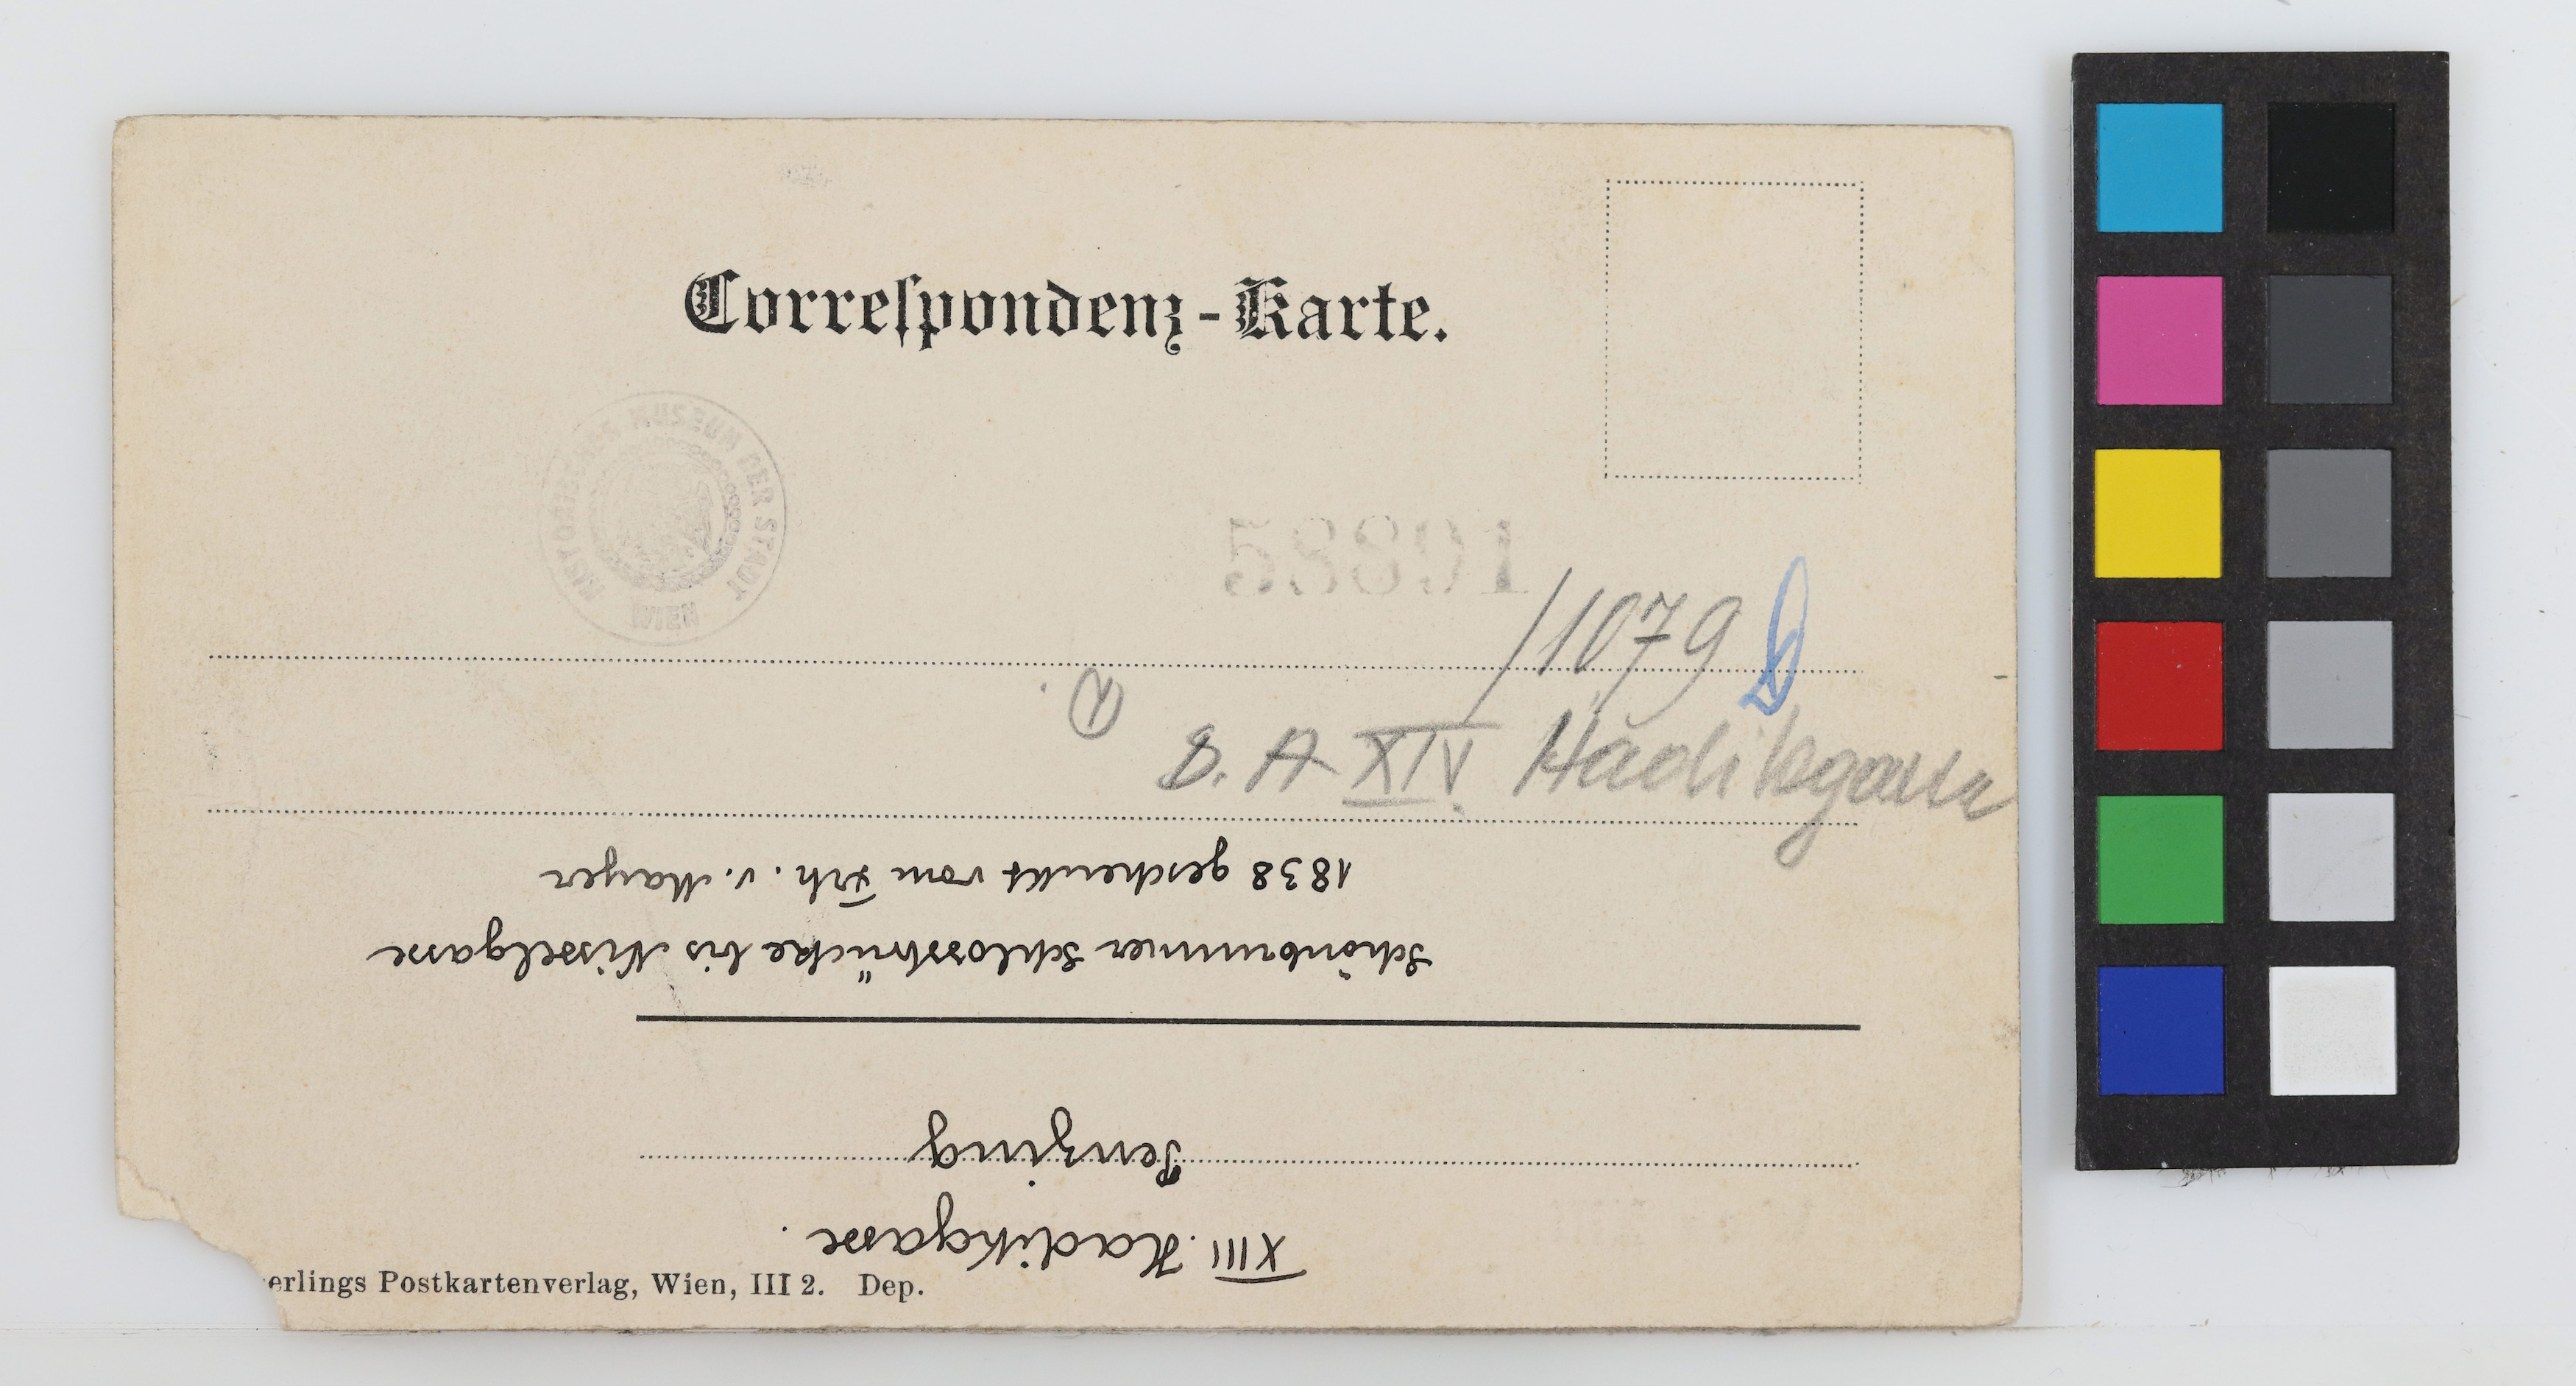 Correspondenz-Karte.
HISTORISCHES MUSEUM DER STADT WIEN
58891
/1079
S. A XIV. Hadikgasse
XIII. Hadikgasse.
Penzing
Schönbrunner Schlossbrücke bis Nisselgasse
1838 geschenkt vom Frh. v. Mayer
erlings Postkartenverlag, Wien, III 2. Dep.